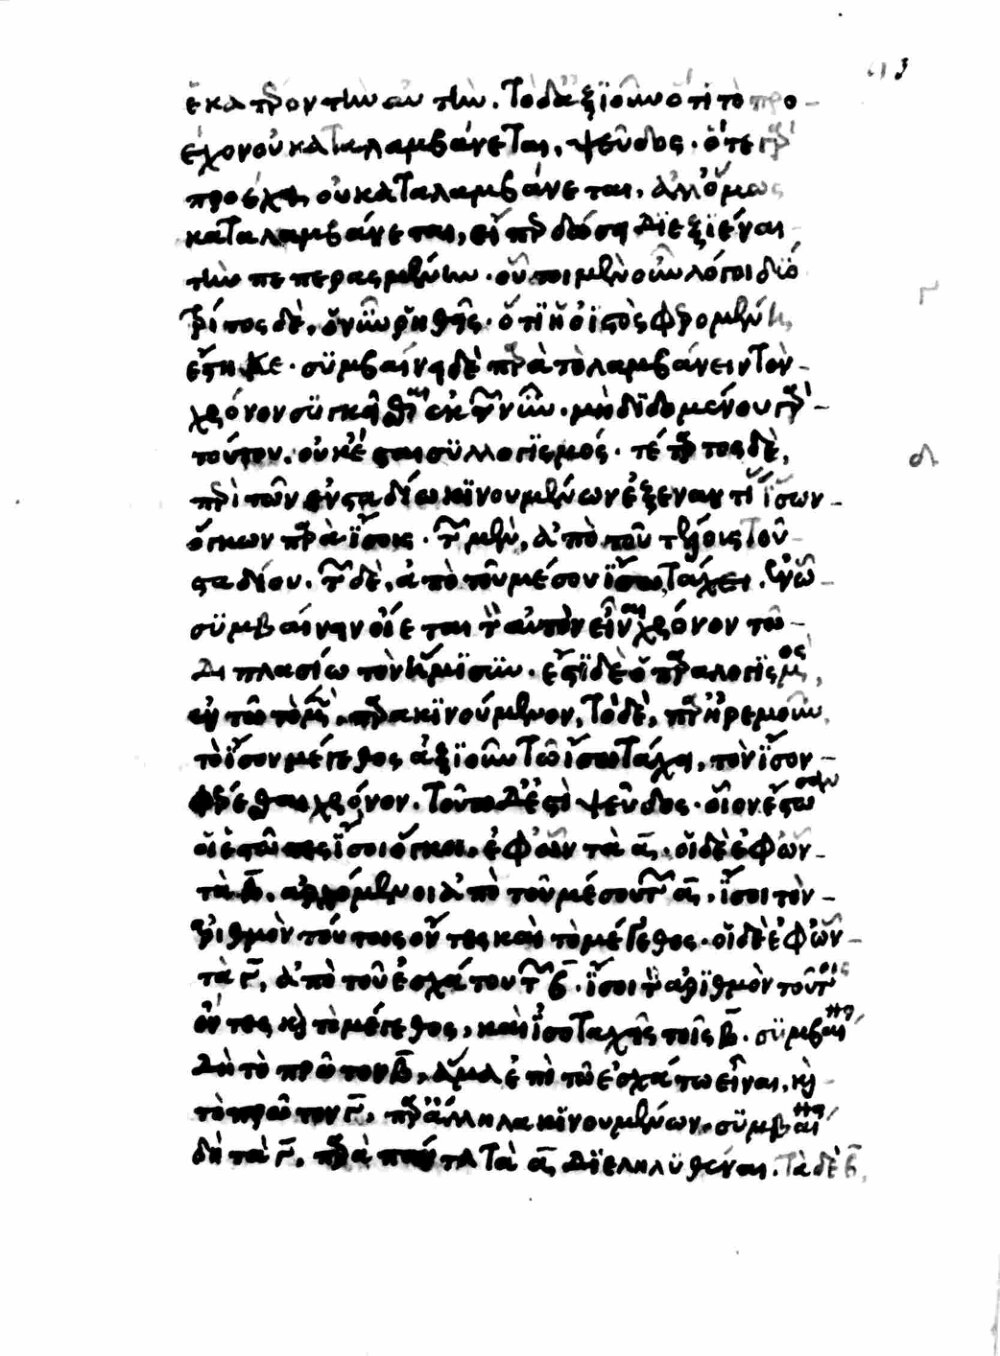 ἑκάτερον τὴν αὐτήν. Τὸ δ' ἀξιοῦν ὅτι τὸ προ-
έχον οὐ καταλαμβάνεται, ψεῦδος. ὅτε γὰρ
προέχει, οὐ καταλαμβάνεται. ἀλλ' ὅμως
καταλαμβάνεται, εἴπερ δώσει διεξιέναι
τὴν πεπερασμένην. οὗτοι μὲν οὖν λόγοι δύο
τρίτος δὲ, ὁ νῦν ῥηθεὶς. ὅτι ἡ ὀϊστὸς φερομένη,
ἕστηκε. συμβαίνει δὲ παρὰ τὸ λαμβάνειν τὸν
χρόνον συγκεῖσθαι ἐκ τῶν νῦν. μὴ διδομένου γὰρ
τούτου, οὐκ ἔσται συλλογισμός. τέταρτος δὲ,
περὶ τῶν ἐν σταδίῳ κινουμένων ἐξ ἐναντίας ἴσων
ὄγκων παρ' ἴσους. τῶν μὲν, ἀπὸ τοῦ τέλους τοῦ
σταδίου. τῶν δὲ, ἀπὸ τοῦ μέσου ἴσῳ τάχει. ἐν ᾧ
συμβαίνειν οἴεται τὸν αὐτὸν εἶναι χρόνον τῷ
διπλασίῳ τὸν ἥμισυν. ἔστι δὲ ὁ παραλογισμὸς,
ἐν τῷ τὸ μὲν, παρὰ κινούμενον, τὸ δὲ, παρ' ἠρεμοῦν,
τὸ ἴσον μέγεθος ἀξιοῦν τῷ ἴσῳ τάχει, τὸν ἴσον
φέρεσθαι χρόνον. τοῦτο δ' ἐστὶ ψεῦδος. οἷον ἔστωσαν
οἱ ἑστῶτες ἴσοι ὄγκοι, ἐφ' ὧν τὰ α. οἱ δὲ ἐφ' ὧν
τὰ β. ἀρχόμενοι ἀπὸ τοῦ μέσου τῶν α, ἴσοι τὸν
ἀριθμὸν τούτοις ὄντες καὶ τὸ μέγεθος. οἱ δὲ ἐφ' ὧν
τὰ γ, ἀπὸ τοῦ ἐσχάτου τῶν β. ἴσοι τὸν ἀριθμὸν τούτοις
ὄντες καὶ τὸ μέγεθος, καὶ ἰσοταχεῖς τοῖς β. συμβαίνει
δὴ τὸ πρῶτον β, ἅμα ἐπὶ τῷ ἐσχάτῳ εἶναι, καὶ
τὸ πρῶτον γ, παρ' ἄλληλα κινουμένων. συμβαίνει
δὴ τὰ γ, παρὰ πάντα τὰ α διεληλυθέναι. τὰ δὲ β,